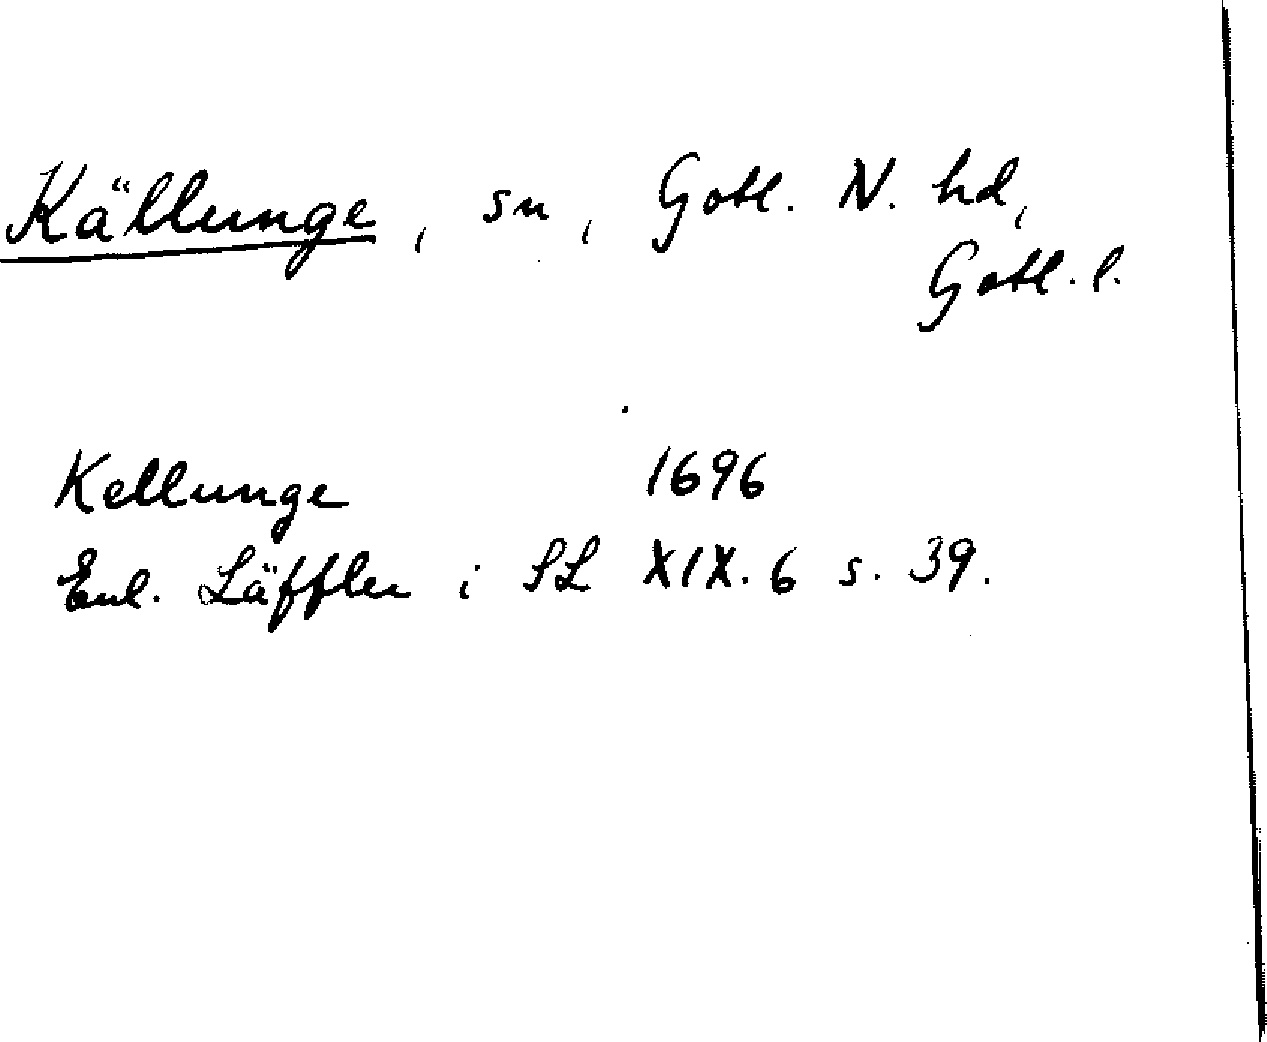 Källunge, sn, Gotl. N. hd,
Gotl. l.
Kellunge 1696
Enl. Läffler i SL XIX. 6 s. 39.